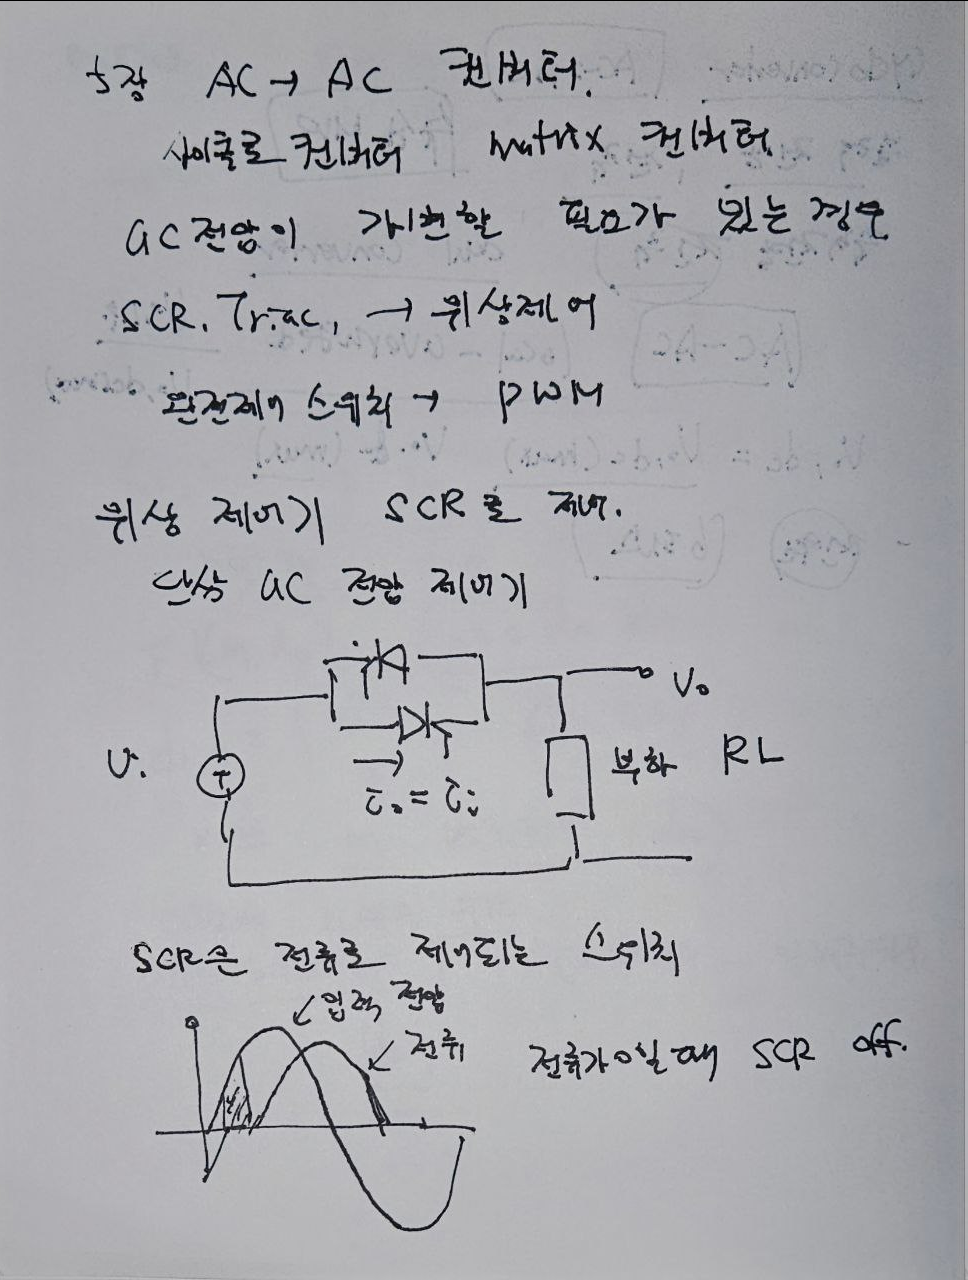 5장 AC → AC 컨버터.
사이클로 컨버터 matrix 컨버터.
ac 전압이 가변할 필요가 있는 경우
SCR. Triac, → 위상제어
완전제어 스위치 → PWM
위상 제어기 SCR로 제어.
단상 ac 전압 제어기
Vo
Vi
부하 RL
io = ii
SCR은 전류로 제어되는 스위치
입력 전압
전류
전류가 0일 때 SCR off.